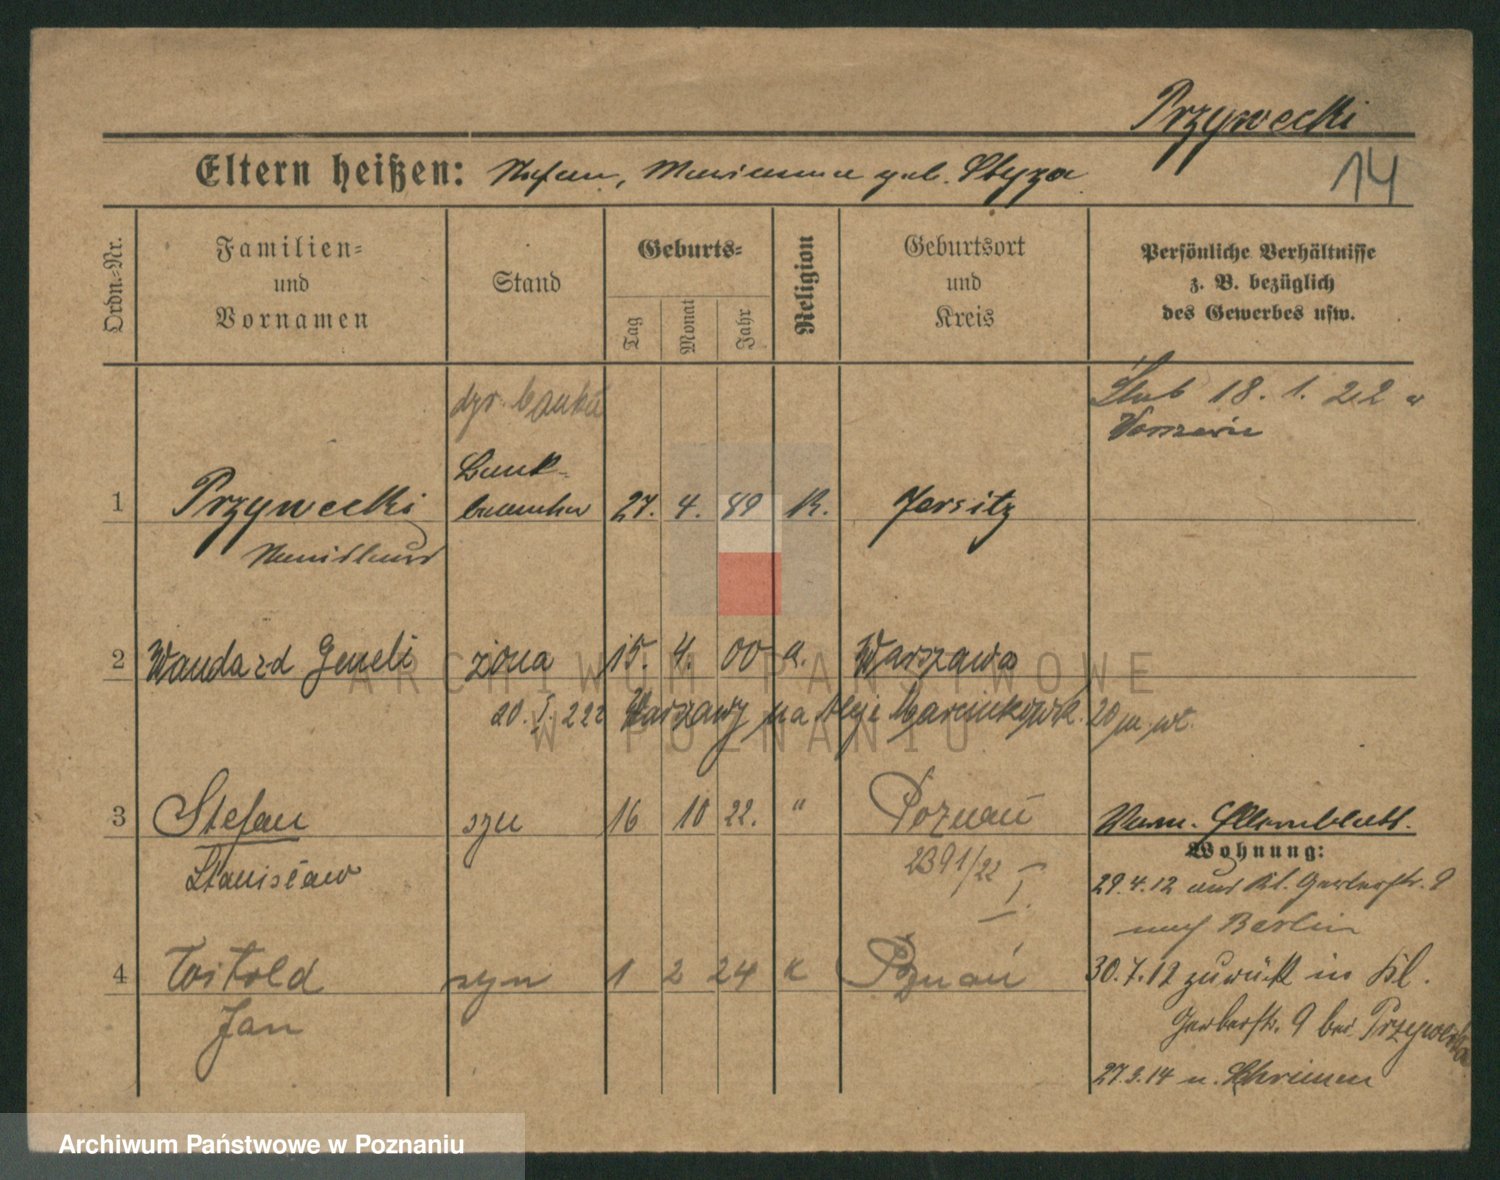 Przywecki
Eltern heißen: Stefan, Marianna geb. Styza
14
Ordn.-Nr.
Familien- und Vornamen
Stand
Geburts-
Tag
Monat
Jahr
Religion
Geburtsort und Kreis
Persönliche Verhältnisse
z. B. bezüglich
des Gewerbes usw.
dyr. banku
Ślub 18. 1. 22 w
1 Przywecki Bank-beamter 27. 4. 89 K. Jersitz
2 Wanda z d żona 15. 4. 00 K. Warszawa
20. 222 Warszawy na Aleje Marcinkowsk. 20
3 Stefan syn 16 10 22. " Poznań
Stanisław
2391/22 I.
Wohnung:
29.4.12 aus Kl. Gerberstr. 9
nach Berlin
4 Witold syn 1 2 24 k Poznań
Jan
30.7.12 zurück in Kl.
Gerberstr. 9 bei Przywecka
27.3.14 n. Schrimm
ARCHIWUM PAŃSTWOWE
W POZNANIU
Archiwum Państwowe w Poznaniu